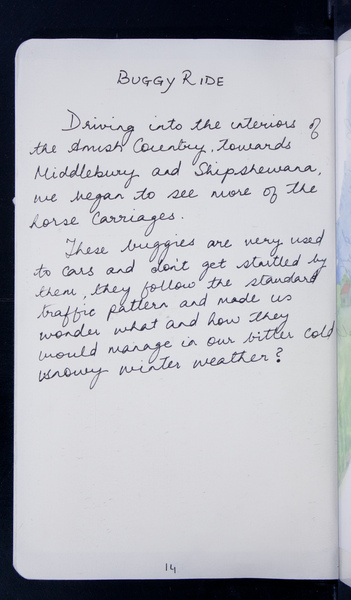 BUGGY RIDE
Driving into the interiors of
the Amish Country, towards
Middlebury and Shipshewana,
we began to see more of the
horse carriages.
These buggies are very used
to cars and don't get startled by
them, they follow the standard
traffic pattern and made us
wonder what and how they
would manage in our bitter cold
snowy winter weather?
14